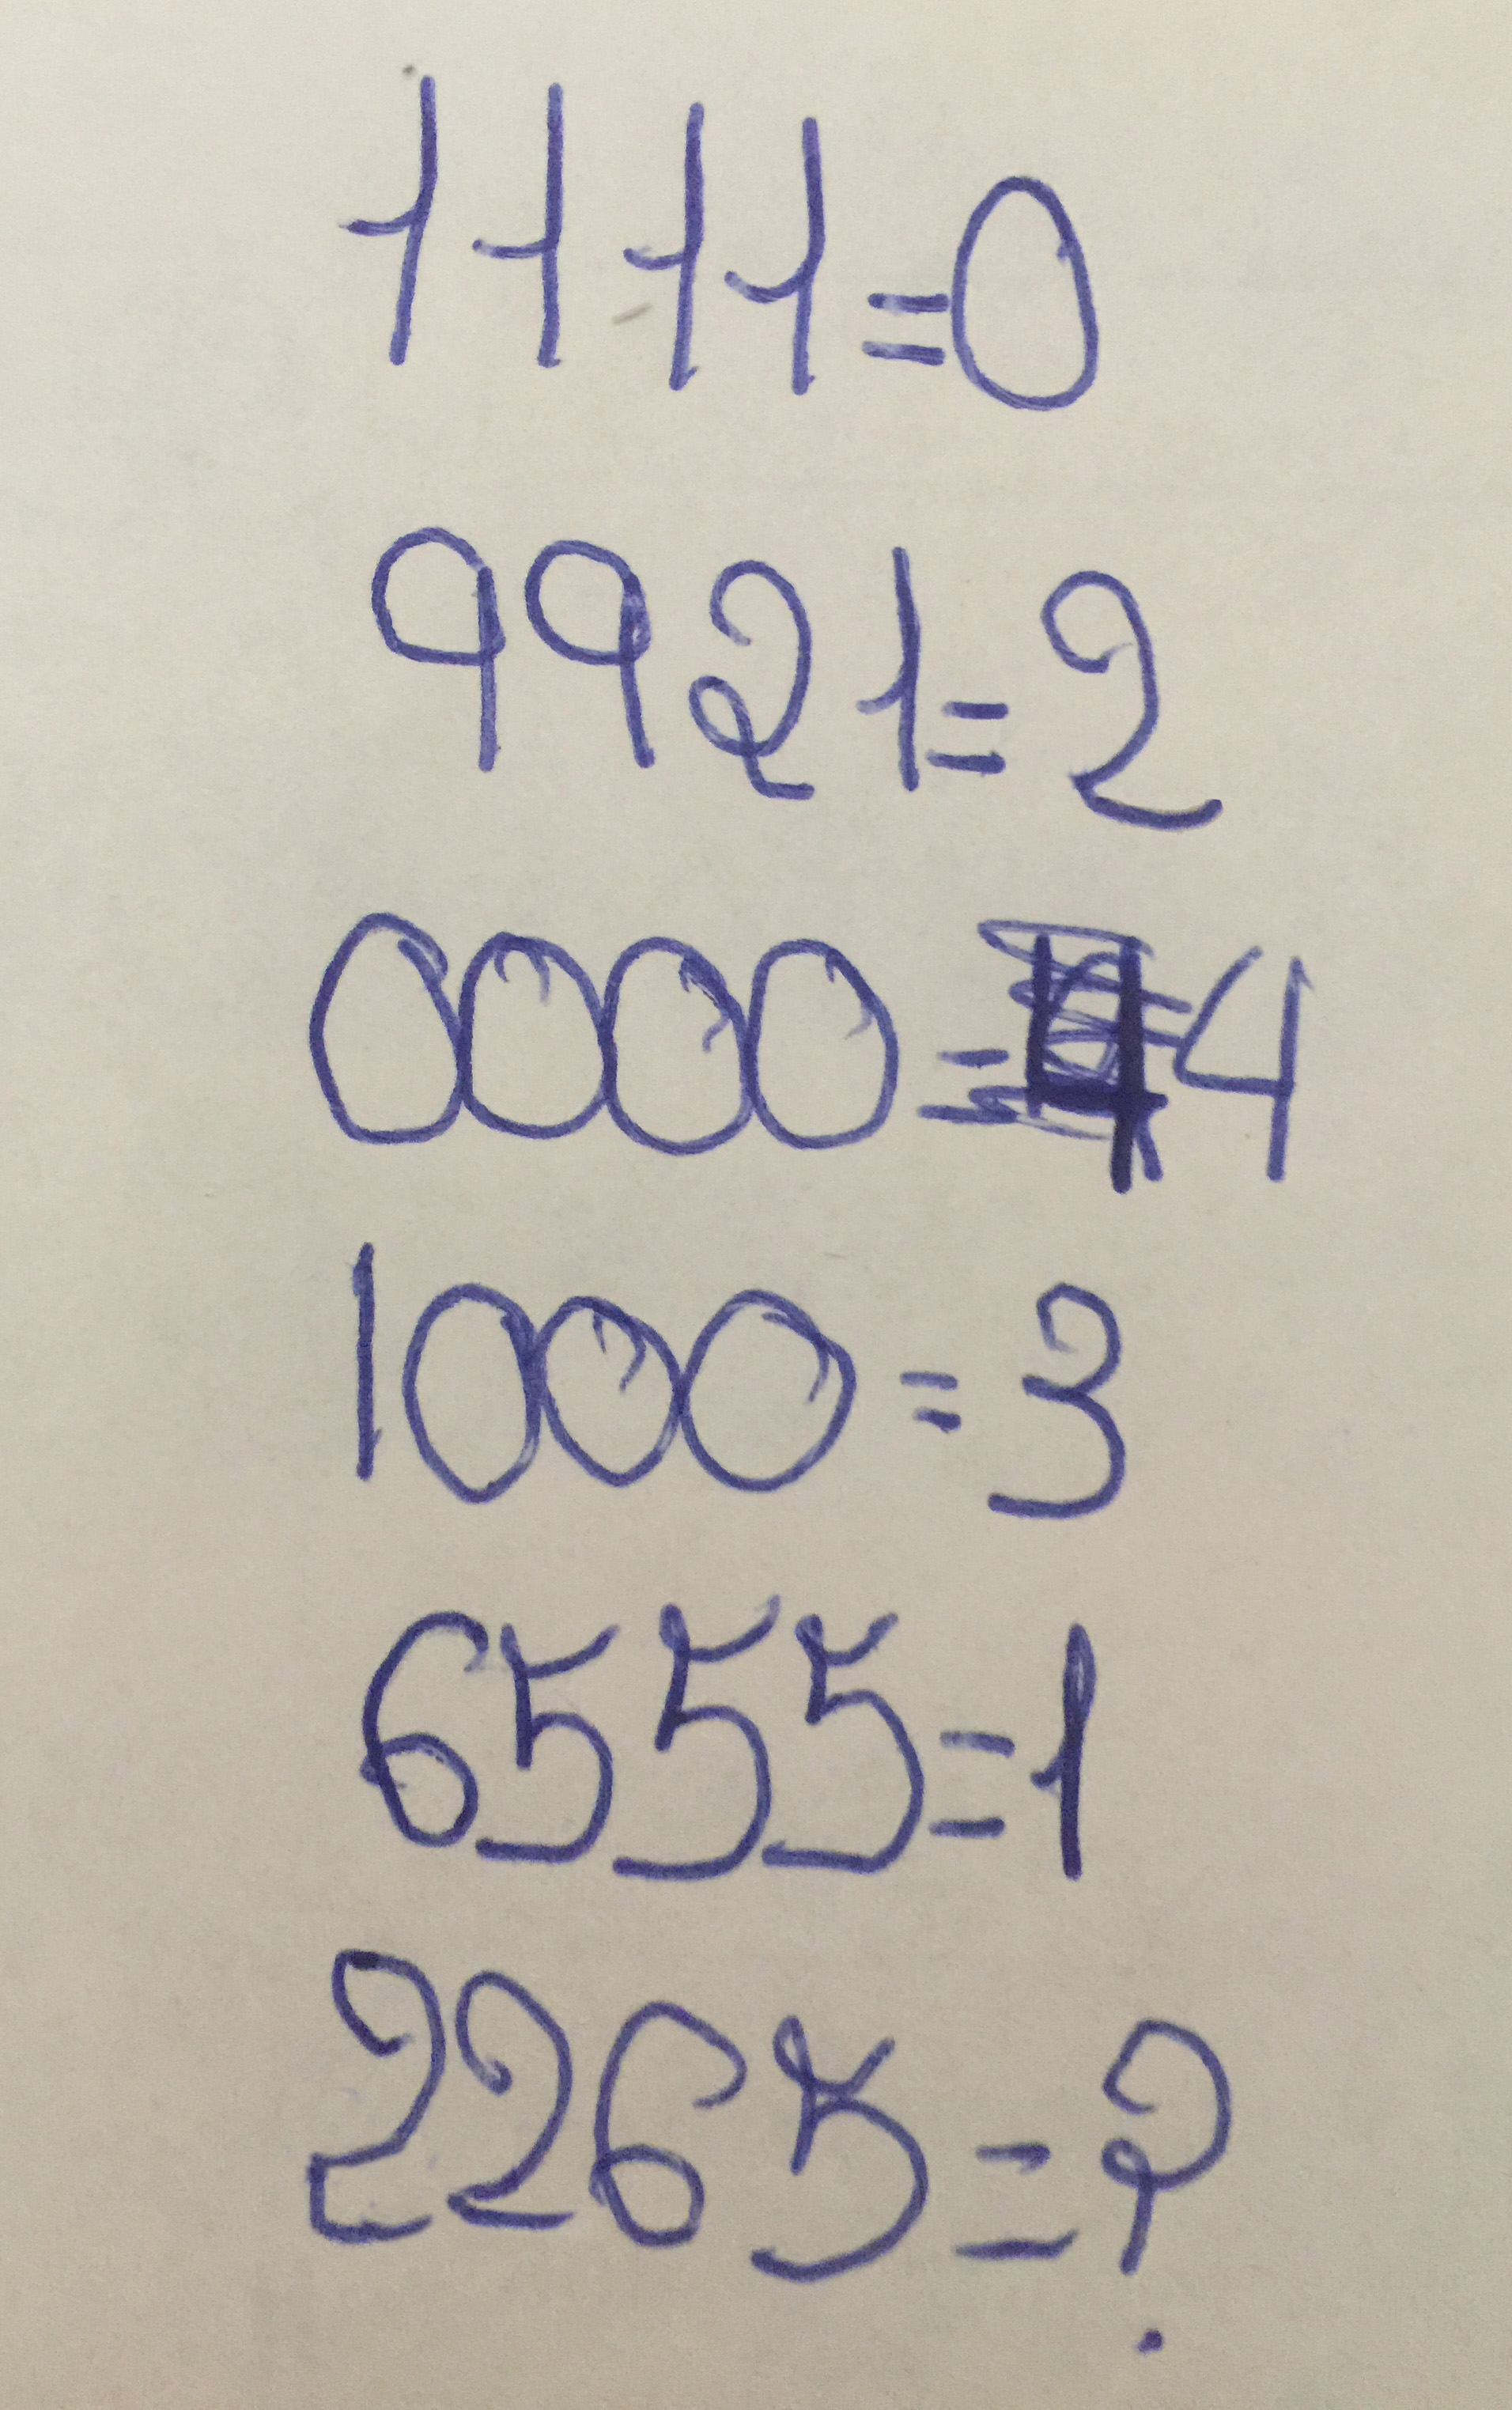 1111=0
9921=2
0000=4
1000=3
6555=1
2265=?